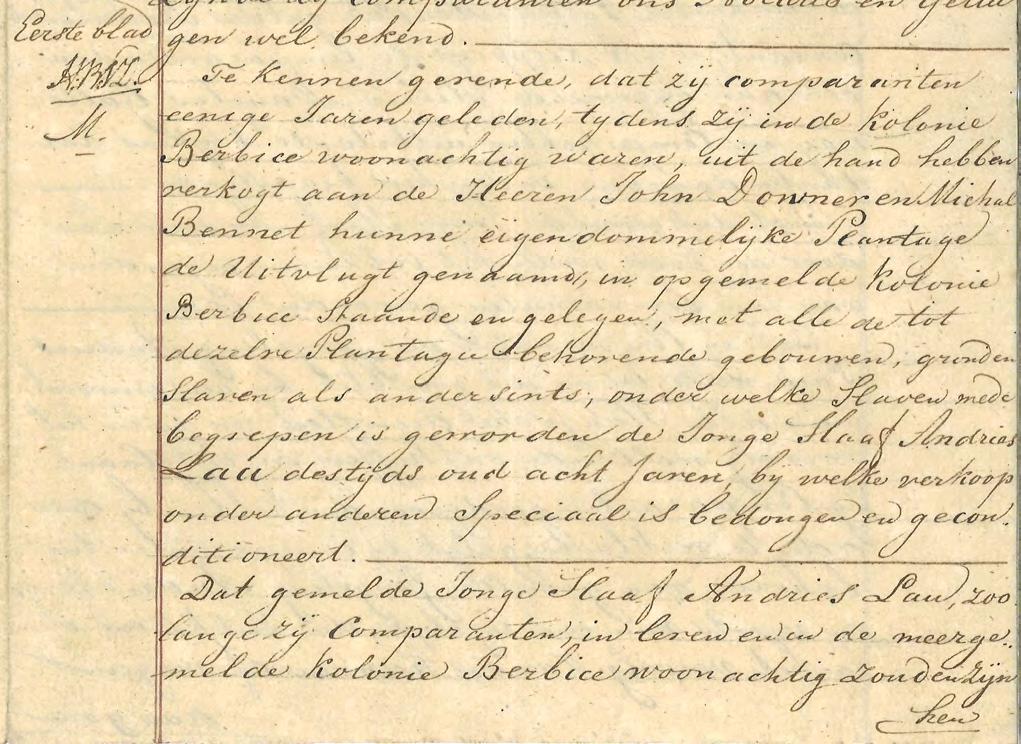 Zijnde dij comparanten ons Notaris en getui
gen wel bekend.
Eerste blad
M.
Te kennen gevende, dat zij comparanten
eenige Jaren geleden, tydens zij in de kolonie
Berbice woonachtig waren, uit de hand hebben
verkogt aan de Heeren John Downer en Michal
Bennet hunne eigendommelijke Plantage
de Uitvlugt genaamd, in opgemelde kolonie
Berbice Staande en gelegen, met alle de tot
dezelve Plantagie behorende gebouwen, gronden
Slaven als andersints, onder welke Slaven mede
begrepen is geworden de Jonge Slaaf Andries
Lau destijds oud acht Jaren, by welke verkoop
onder anderen Speciaal is bedongen en gecon„
ditioneert.
Dat gemelde Jonge Slaaf Andries Lau, zoo
lange zij Comparanten, in leven en in de meerge„
melde kolonie Berbice woonachtig zouden zijn
hen